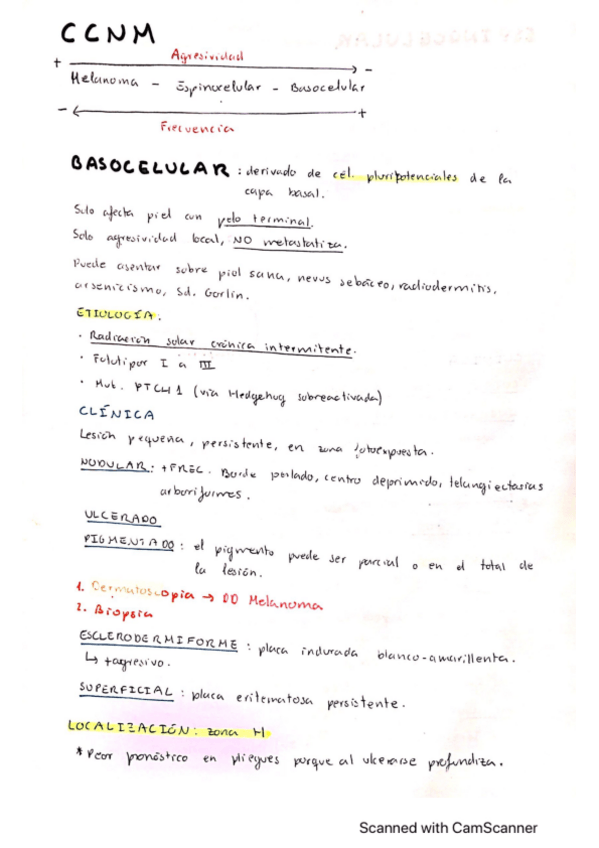 CCNM
Agresividad
+ -
Melanoma - Espinocelular - Basocelular
- +
Frecuencia
BASOCELULAR : derivado de cél. pluripotenciales de la
capa basal.
Solo afecta piel con pelo terminal.
Solo agresividad local, NO metastatiza.
Puede asentar sobre piel sana, nevus sebáceo, radiodermitis,
arsenicismo, Sd. Gorlin.
ETIOLOGÍA.
· Radiación solar crónica intermitente.
· Fototipos I a III
· Mut. PTCH1 (vía Hedgehog sobreactivada)
CLÍNICA
Lesión pequeña, persistente, en zona fotoexpuesta.
NODULAR: + FREC. Borde perlado, centro deprimido, telangiectasias
arboriformes.
ULCERADO
PIGMENTADO: el pigmento puede ser parcial o en el total de
la lesión.
1. Dermatoscopia → DD Melanoma
2. Biopsia
ESCLERODERMIFORME : placa indurada blanco-amarillenta.
↳ +agresivo.
SUPERFICIAL : placa eritematosa persistente.
LOCALIZACIÓN: zona H
* Peor pronóstico en pliegues porque al ulcerarse profundiza.
Scanned with CamScanner